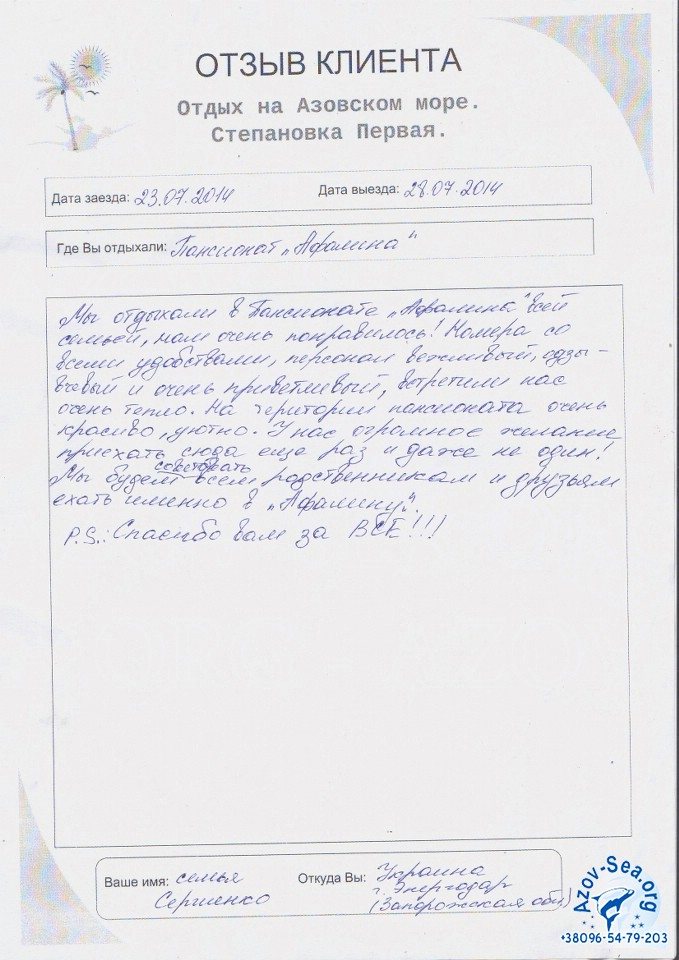 ОТЗЫВ КЛИЕНТА
Отдых на Азовском море.
Степановка Первая.
Дата заезда: 23.07.2014
Дата выезда: 28.07.2014
Где Вы отдыхали: Пансионат „Афалина“
Мы отдыхали в Пансионате „Афалина“ всей
семьёй, нам очень понравилось! Номера со
всеми удобствами, персонал вежливый, одзы-
вчевый и очень приветливый, встретили нас
очень тепло. На територии пансионата очень
красиво, уютно. У нас огромное желание
приехать сюда еще раз и даже не один!
советовать
Мы будем всем родственникам и друзьям
ехать именно в „Афалину“.
P.S.: Спасибо вам за ВСЕ!!!
Ваше имя: семья
Сергиенко
Откуда Вы: Украина
г. Энергодар
(Запорожская обл.)
Azov-Sea.org
+38096-54-79-203